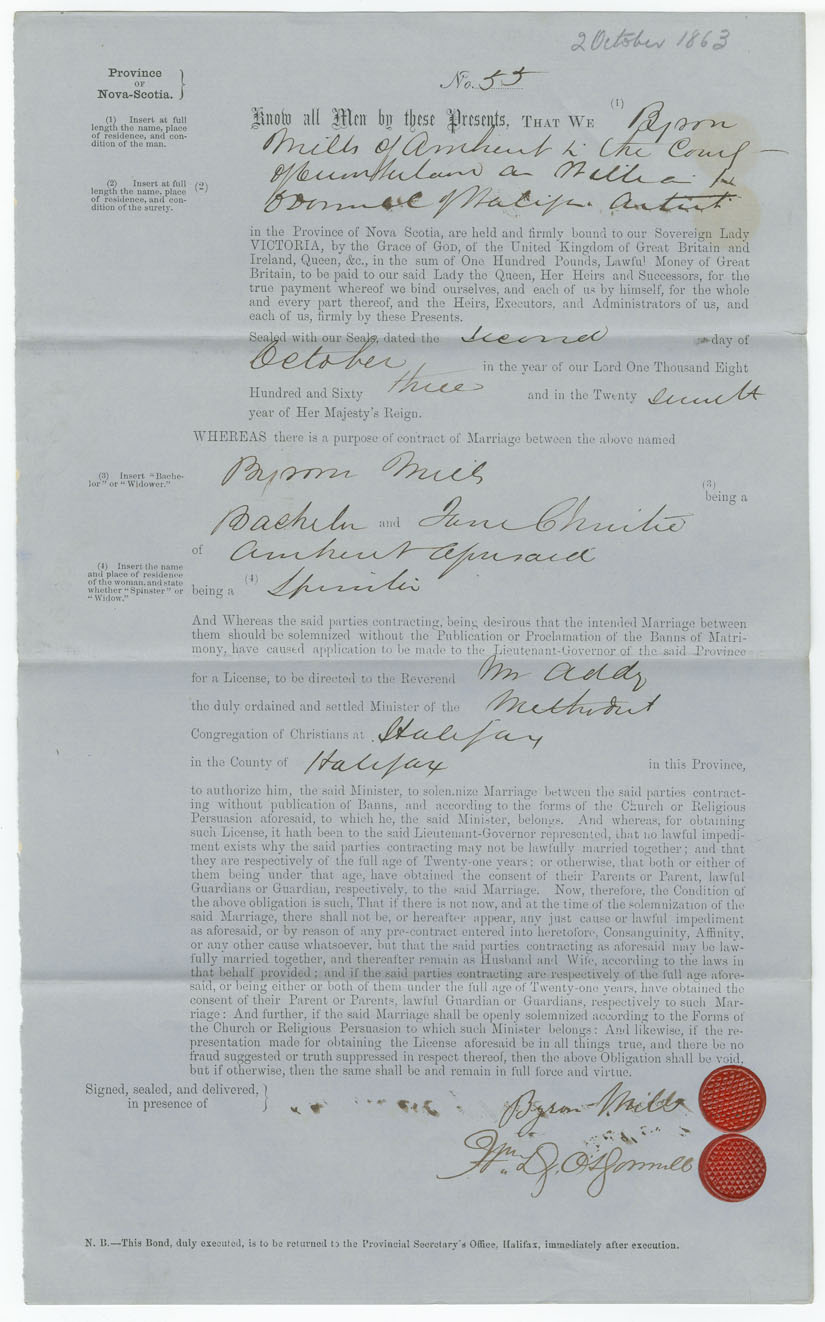 2 October 1863
Province
OF
Nova-Scotia.
No. 55
(1) Insert at full
length the name, place
of residence, and con-
dition of the man.
Know all Men by these Presents, THAT WE (1) Byron
Mills of Amherst in the County
(2) Insert at full
length the name, place
of residence, and con-
dition of the surety.
(2)
of Cumberland an William
of Halifax Artist
in the Province of Nova Scotia, are held and firmly bound to our Sovereign Lady
VICTORIA, by the Grace of GOD, of the United Kingdom of Great Britain and
Ireland, Queen, &c., in the sum of One Hundred Pounds, Lawful Money of Great
Britain, to be paid to our said Lady the Queen, Her Heirs and Successors, for the
true payment whereof we bind ourselves, and each of us by himself, for the whole
and every part thereof, and the Heirs, Executors, and Administrators of us, and
each of us, firmly by these Presents.
Sealed with our Seals, dated the second day of
October in the year of our Lord One Thousand Eight
Hundred and Sixty three and in the Twenty seventh
year of Her Majesty's Reign.
WHEREAS there is a purpose of contract of Marriage between the above named
(3) Insert "Bache-
lor" or "Widower."
Byrom Mills
(3)
being a
Bachelor and Jane Christie
of Amherst aforesaid
(4) Insert the name
and place of residence
of the woman, and state
whether "Spinster" or
"Widow."
being a (4) Spinster
And Whereas the said parties contracting, being desirous that the intended Marriage between
them should be solemnized without the Publication or Proclamation of the Banns of Matri-
mony, have caused application to be made to the Lieutenant-Governor of the said Province
for a License, to be directed to the Reverend Mr Addy
the duly ordained and settled Minister of the Methodist
Congregation of Christians at Halifax
in the County of Halifax in this Province,
to authorize him, the said Minister, to solemnize Marriage between the said parties contract-
ing without publication of Banns, and according to the forms of the Church or Religious
Persuasion aforesaid, to which he, the said Minister, belongs. And whereas, for obtaining
such License, it hath been to the said Lieutenant-Governor represented, that no lawful impedi-
ment exists why the said parties contracting may not be lawfully married together; and that
they are respectively of the full age of Twenty-one years; or otherwise, that both or either of
them being under that age, have obtained the consent of their Parents or Parent, lawful
Guardians or Guardian, respectively, to the said Marriage. Now, therefore, the Condition of
the above obligation is such, That if there is not now, and at the time of the solemnization of the
said Marriage, there shall not be, or hereafter appear, any just cause or lawful impediment
as aforesaid, or by reason of any pre-contract entered into heretofore, Consanguinity, Affinity,
or any other cause whatsoever, but that the said parties contracting as aforesaid may be law-
fully married together, and thereafter remain as Husband and Wife, according to the laws in
that behalf provided; and if the said parties contracting are respectively of the full age afore-
said, or being either or both of them under the full age of Twenty-one years, have obtained the
consent of their Parent or Parents, lawful Guardian or Guardians, respectively to such Mar-
riage: And further, if the said Marriage shall be openly solemnized according to the Forms of
the Church or Religious Persuasion to which such Minister belongs: And likewise, if the re-
presentation made for obtaining the License aforesaid be in all things true, and there be no
fraud suggested or truth suppressed in respect thereof, then the above Obligation shall be void,
but if otherwise, then the same shall be and remain in full force and virtue.
Signed, sealed, and delivered,
in presence of
Byron Mills
Wm
N. B.—This Bond, duly executed, is to be returned to the Provincial Secretary's Office, Halifax, immediately after execution.